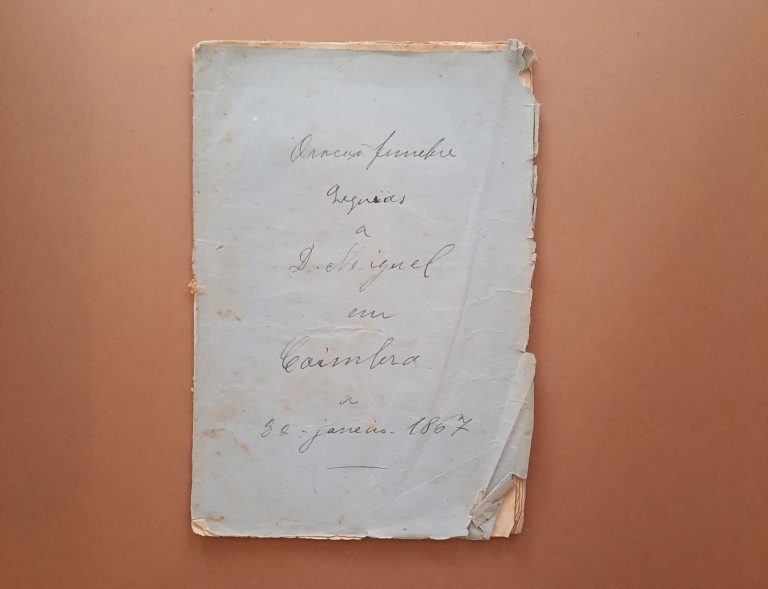 Oracaõ funebre
Exequias
a
D. Miguel
em
Coimbra
a
30 - janeiro - 1867